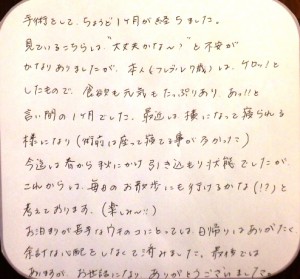 手術をして、ちょうど1ヶ月が経ちました。
見ているこちらは、"大丈夫かな〜"と不安が
かなりありましたが、本人(フレブル7歳)は、ケロッ!と
したもので、食欲も元気もたっぷりあり、あっ!!と
言い間の1ヶ月でした。最近は、横になって寝られる
様になり(術前は座って寝てる事が多かった)
今迄は春から秋にかけ引き込もり状態でしたが、
これからは、毎日のお散歩にも行けるかな(!?)と
考えております。(楽しみ〜!!)
お泊まりが苦手なウチのコにとっては、日帰りはありがたく、
余計な心配をしなくて済みました。最後では
ありますが、お世話になり、ありがとうございました。